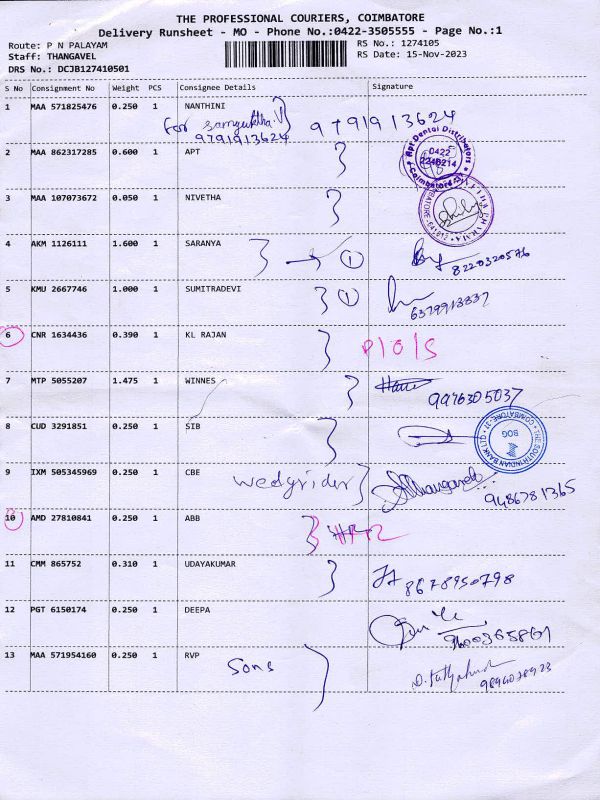 THE PROFESSIONAL COURIERS, COIMBATORE
Delivery Runsheet - MO - Phone No.:0422-3505555 - Page No.:1
Route: P N PALAYAM
RS No.: 1274105
Staff: THANGAVEL
RS Date: 15-Nov-2023
DRS No.: DCJB127410501
S No Consignment No Weight PCS Consignee Details Signature
1 MAA 571825476 0.250 1 NANTHINI
for samyuktha.V 9791913624
9791913624
2 MAA 862317285 0.600 1 APT
Apt Dental Distributors
0422
Coimbatore
3 MAA 107073672 0.050 1 NIVETHA
4 AKM 1126111 1.600 1 SARANYA 1
8220320576
5 KMU 2667746 1.000 1 SUMITRADEVI 1
6379913837
6 CNR 1634436 0.390 1 KL RAJAN P/O/S
7 MTP 5055207 1.475 1 WINNES
9976305037
8 CUD 3291851 0.250 1 SIB
THE SOUTH INDIAN BANK LTD
COIMBATORE
BOG
9 IXM 505345969 0.250 1 CBE wedgrider
9486781365
10 AMD 27810841 0.250 1 ABB
11 CMM 865752 0.310 1 UDAYAKUMAR
8678950798
12 PGT 6150174 0.250 1 DEEPA
13 MAA 571954160 0.250 1 RVP Sons